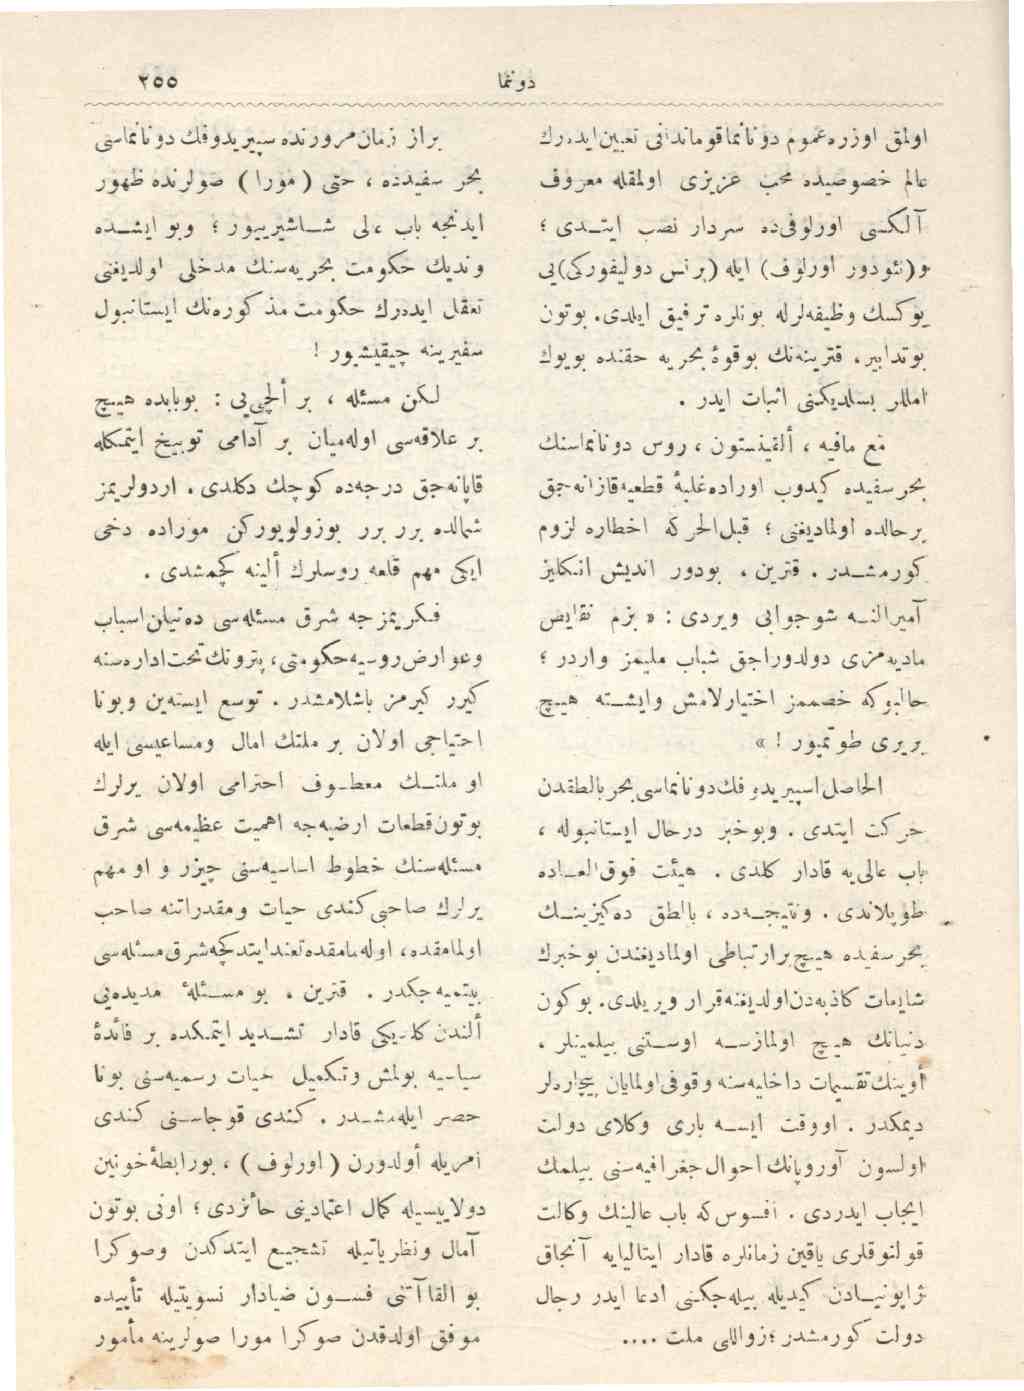 دونما
٢٥٥
اولمق اوزره عموم دونانما قوماندانی تعیین ایدەرك
عالم خصوصیده محب عزیزی اولمقله معروف
آلكسی اورلوفی ده سردار نصب ایتدی ؛
و(تئودور اورلوف) ایله (پرنس دولیفورکی)یی
یوكسك وظیفه‌لرله بونلره ترفیق ایلدی. بوتون
بوتدابیر، قترینه‌نك بوقوهٔ بحریه حقنده بویوك
امللر بسلدیكنی اثبات ایدر .
مع مافیه ، ألفینستون ، روس دونانماسنك
بحر سفیده كیدوب اوراده غلبهٔ قطعیه قازانه‌جق
برحالده اولمادیغنی ؛ قبل الحركه اخطاره لزوم
كورمشدر . قترین ، بودور اندیش انكلیز
آمیرالنه شو جوابی ویردی : « بزم نقایص
مادیه‌مزی دولدوراجق شباب ملیمز واردر ؛
حالبوكه خصممز اختیارلامش وایشته هیچ
بریری طوتمیور ! »
الحاصل اسپیریدوفك دونانماسی بحر بالطقدن
حركت ایتدی . وبوخبر درحال ایستانبوله ،
باب عالی‌یه قادار كلدی . هیئت فوق‌العاده
طوپلاندی . ونتیجه‌ده ، بالطق ده‌كیزینك
بحر سفیده هیچ برارتباطی اولمادیغندن بوخبرك
شایعات كاذبه‌دن اولدیغنه قرار ویریلدی. بوكون
دنیانك هیچ اولمازسه اوستنی بیلمینلر ،
أوینك تقسیمات داخلیه‌سنه وقوفی اولمایان بیچاره‌لر
دیمكدر . اووقت ایسه باری وكلای دولت
اولسون آوروپانك احوال جغرافیه‌سنی بیلمك
ایجاب ایدردی . افسوس‌كه باب عالینك وكالت
قولتوقلری یاقین زمانلره قادار ایتالیایه آنجاق
ژاپونیادن كیدیله بیله‌جكنی ادعا ایدر رجال
دولت كورمشدر ؛ زواللی ملت ....
براز زمان مرورنده سپیریدوفك دونانماسی
بحر سفیدده ، حتی ( مورا ) صولرنده ظهور
ایدنجه باب عالی شاشیرییور ؛ وبو ایشده
وندیك حكومت بحریه‌سنك مدخلی اولدیغنی
تعقل ایدەرك حكومت مذكوره‌نك ایستانبول
سفیرینه چیقیشیور !
لكن مسئله ، بر ألچی‌یی : بوبابده هیچ
بر علاقه‌سی اوله‌میان بر آدامی توبیخ ایتمكله
قاپانه‌جق درجه‌ده كوچك دكلدی . اردولریمز
شمالده برر برر بوزولویوركن موراده دخی
ایكی مهم قلعه روسلرك ألینه كچمشدی .
فكریمزجه شرق مسئله‌سی ده‌نیلن اسباب
وعوارض روسیه حكومتی، پترونك تحت اداره‌سنه
كیرر كیرمز باشلامشدر . توسع ایسته‌ین وبوناا
احتیاجی اولان بر ملتك امال ومساعیسی ایله
او ملتك معطوف احترامی اولان یرلرك
بوتون قطعات ارضیه‌جه اهمیت عظیمه‌سی شرق
مسئله‌سنك خطوط اساسیه‌سنی چیزر و او مهم
یرلرك صاحبی كندی حیات ومقدراتنه صاحب
اولمامقده، اوله‌مامقده تعند ایتدكجه شرق مسئله‌سی
بیتمیه‌جكدر . قترین ، بو مسئلهٔ مدیده‌یی
ألندن كلدیكی قادار تشدید ایتمكده بر فائدهٔ
سیاسیه بولمش وتكمیل حیات رسمیه‌سنی بوكا
حصر ایله‌مشدر . كندی قوجاسنی كندی
امریله أولدورن ( اورلوف ) ، بورابطهٔ خونین
دولاییسیله كمال اعتمادینی حائزدی ؛ اونی بوتون
آمال ونظریاتیله تشجیع ایتدكدن وصوكرا
بو القاآتنی فسون ضیادار نسویتیله تأییده
موفق اولدقدن صوكرا مورا صولرینه مأمور